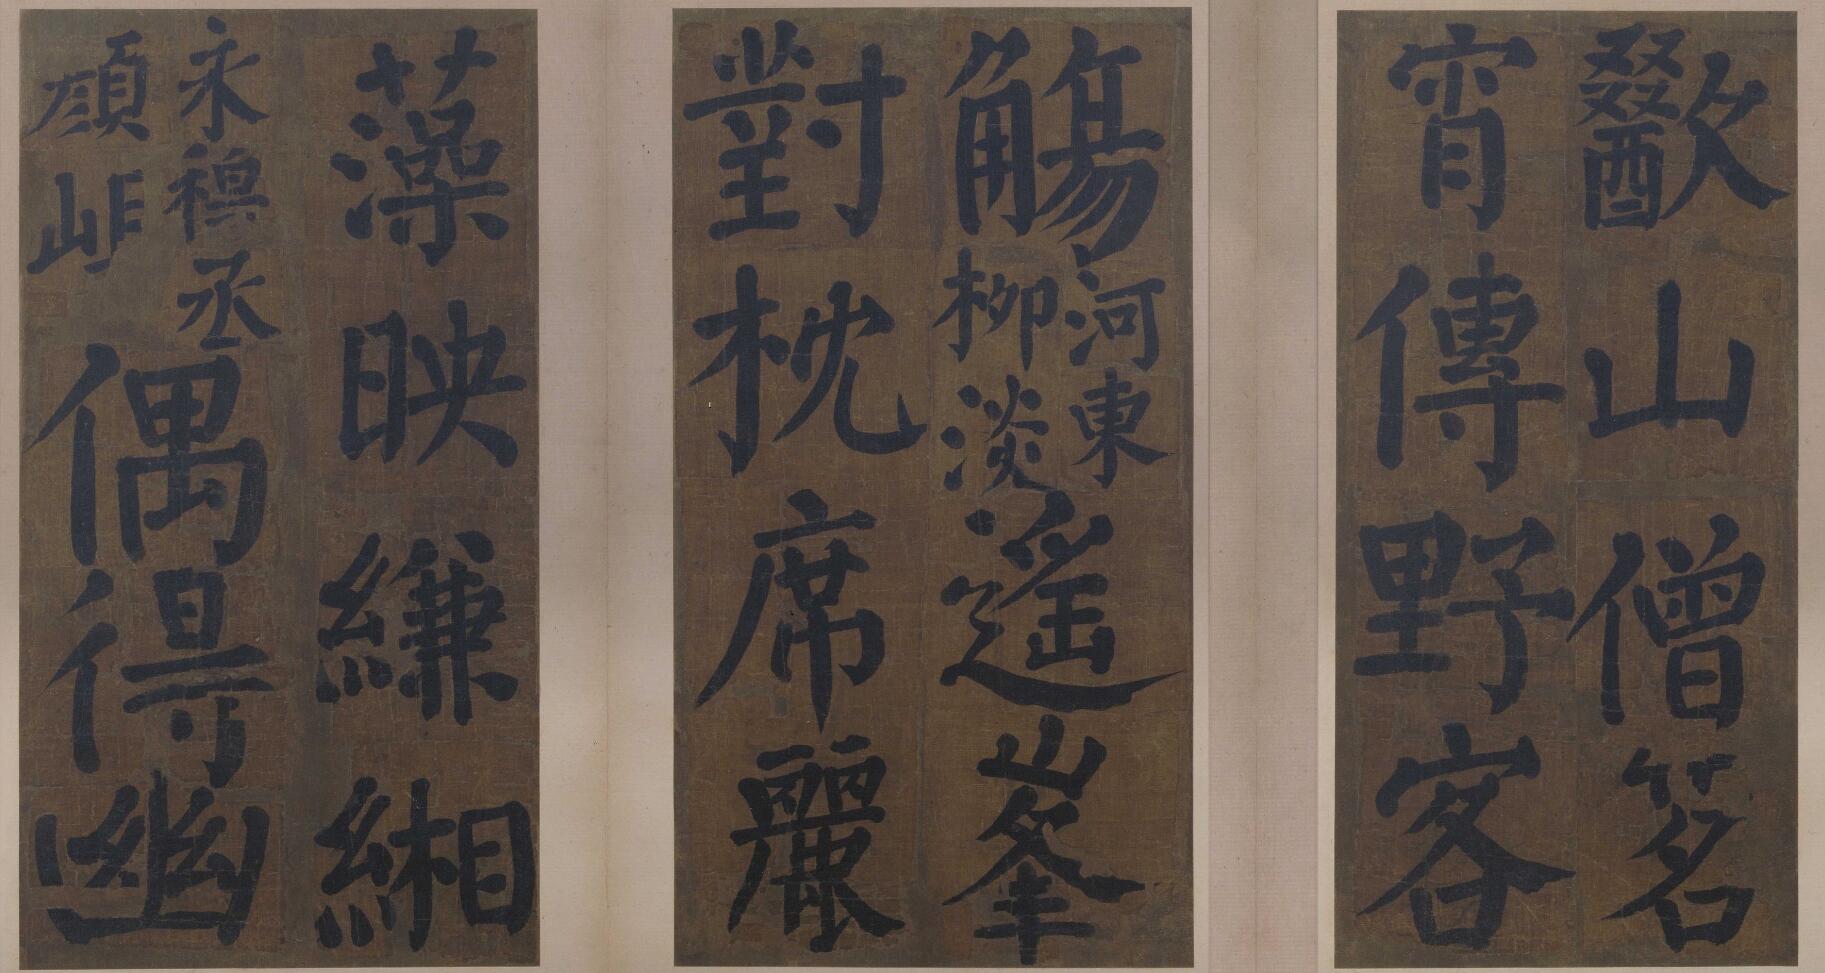 歠山僧茗
宵傳野客
觴河東柳淡遙峯
對枕席麗
藻映縑緗
永穆丞顔岠偶得幽